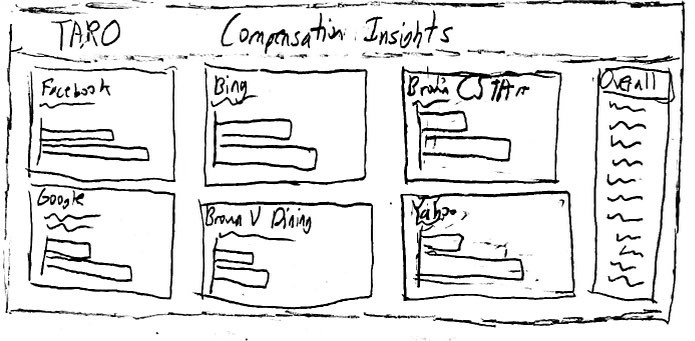 TARO
Compensation Insights
Facebook
Bing
Brown CS TA
Overall
Google
Brown V Dining
Yahoo